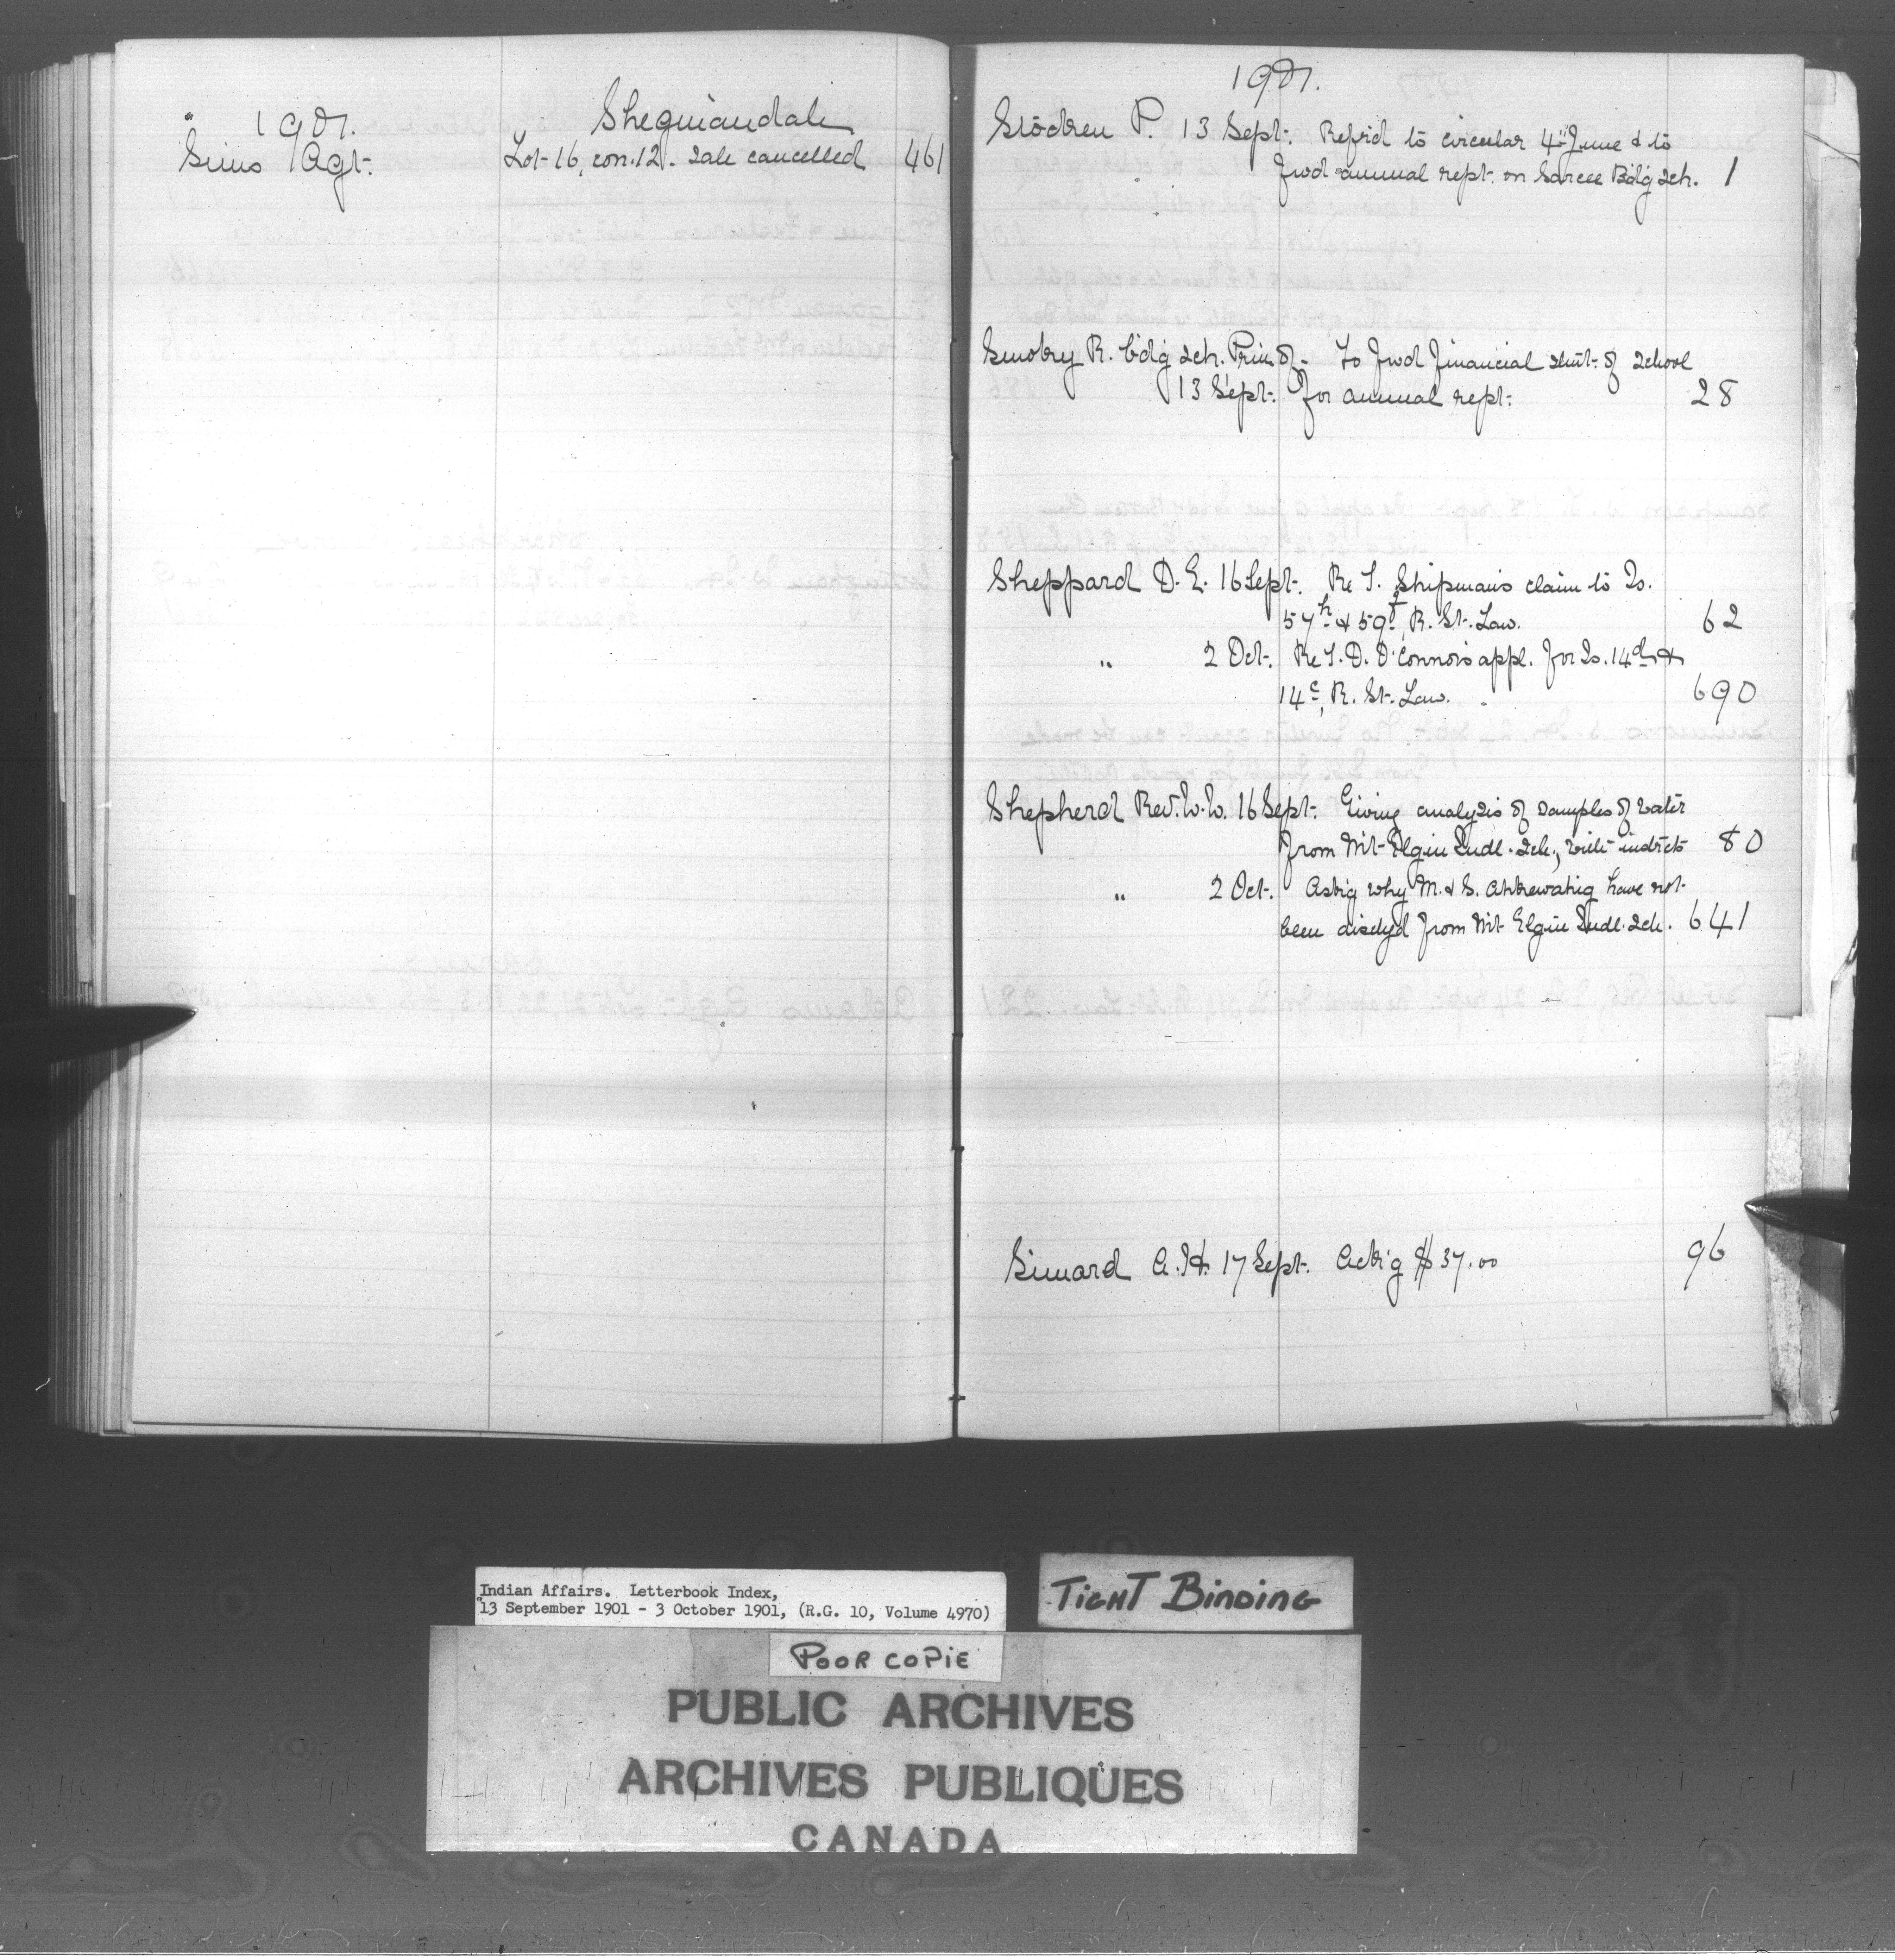 1901. Sheguiandah
Sims Agt. Lot 16, con. 12. Sale cancelled 461
1901.
Stocken P. 13 Sept. Refrd to circular 4th June & to
fwd annual rept. on Sarcee Bdg Sch. 1
R. Bdg Sch. Prin of. To fwd financial stmt. of School
13 Sept. for annual rept. 28
Sheppard D. E. 16 Sept. Re T. Shipman's claim to Is.
57h & 59f, R. St. Law. 62
" 2 Oct. Re T. D. O'Connor's appl. for Is. 14d &
14e, R. St. Law. 690
Shepherd Rev. W. W. 16 Sept. Giving analysis of samples of water
from Mt Elgin Indl. Sch., with instrcts 80
" 2 Oct. Askg why M. & S. have not
been dischgd from Mt Elgin Indl. Sch. 641
Simard A. H. 17 Sept. Ackg $37.00 96
Indian Affairs. Letterbook Index,
13 September 1901 - 3 October 1901, (R.G. 10, Volume 4970)
TIGHT BINDING
POOR COPIE
PUBLIC ARCHIVES
ARCHIVES PUBLIQUES
CANADA